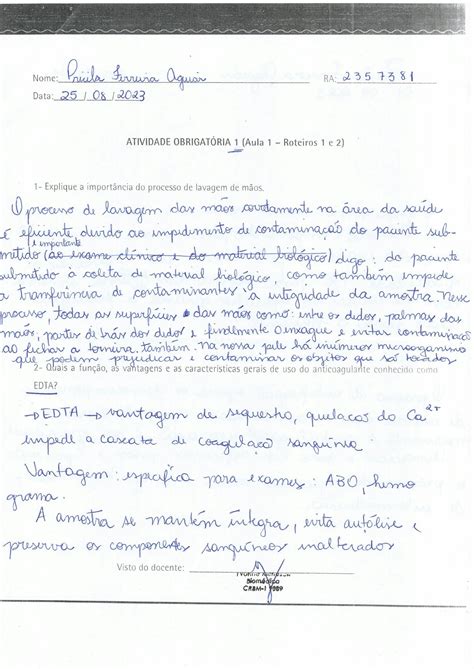 Nome: Priila Ferreira Aguiar RA: 2357381
Data: 25/08/2023
ATIVIDADE OBRIGATÓRIA 1 (Aula 1 – Roteiros 1 e 2)
1- Explique a importância do processo de lavagem de mãos.
O processo de lavagem das mãos corretamente na área da saúde
é eficiente, devido ao impedimento de contaminação do paciente sub-
é importante
mitido (ao exame clínico e do material biológico) digo: do paciente
submitido à coleta de material biológico, como também impede
a tranferência de contaminantes à integridade da amostra. Nesse
processo, todas as superfícies das mãos como: entre os dedos, palmas das
mãos, partes de trás dos dedos e finalmente o enxague e evitar contaminação
ao fechar a torneira, também. Na nossa pele há inúmeros microorganismo
que podem prejudicar e contaminar os objetos que são tocados
2- Quais a função, as vantagens e as características gerais de uso do anticoagulante conhecido como
EDTA?
→ EDTA → vantagem de sequestro, quelacas do Ca2+
impede a cascata de coagulação sanguínia.
Vantagem: específica para exames: ABO, hemo
grama.
A amostra se mantém íntegra, evita autólise e
preserva os componentes sanguíneos inalterados
Visto do docente:
Biomédica
CRBM-1